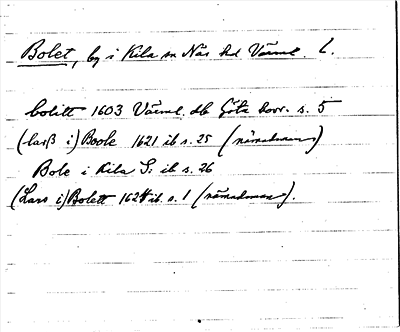 Bolet, by i Kila sn Näs hd Värml. L.
bolitt 1603 Värml. db Göta hovr. s. 5
(larß i) Boole 1621 ib s. 25 (nämndman)
Bole i Kila S: ib s. 26
(Lars i) Bolett 1624 ib. s. 1 (nämndman).